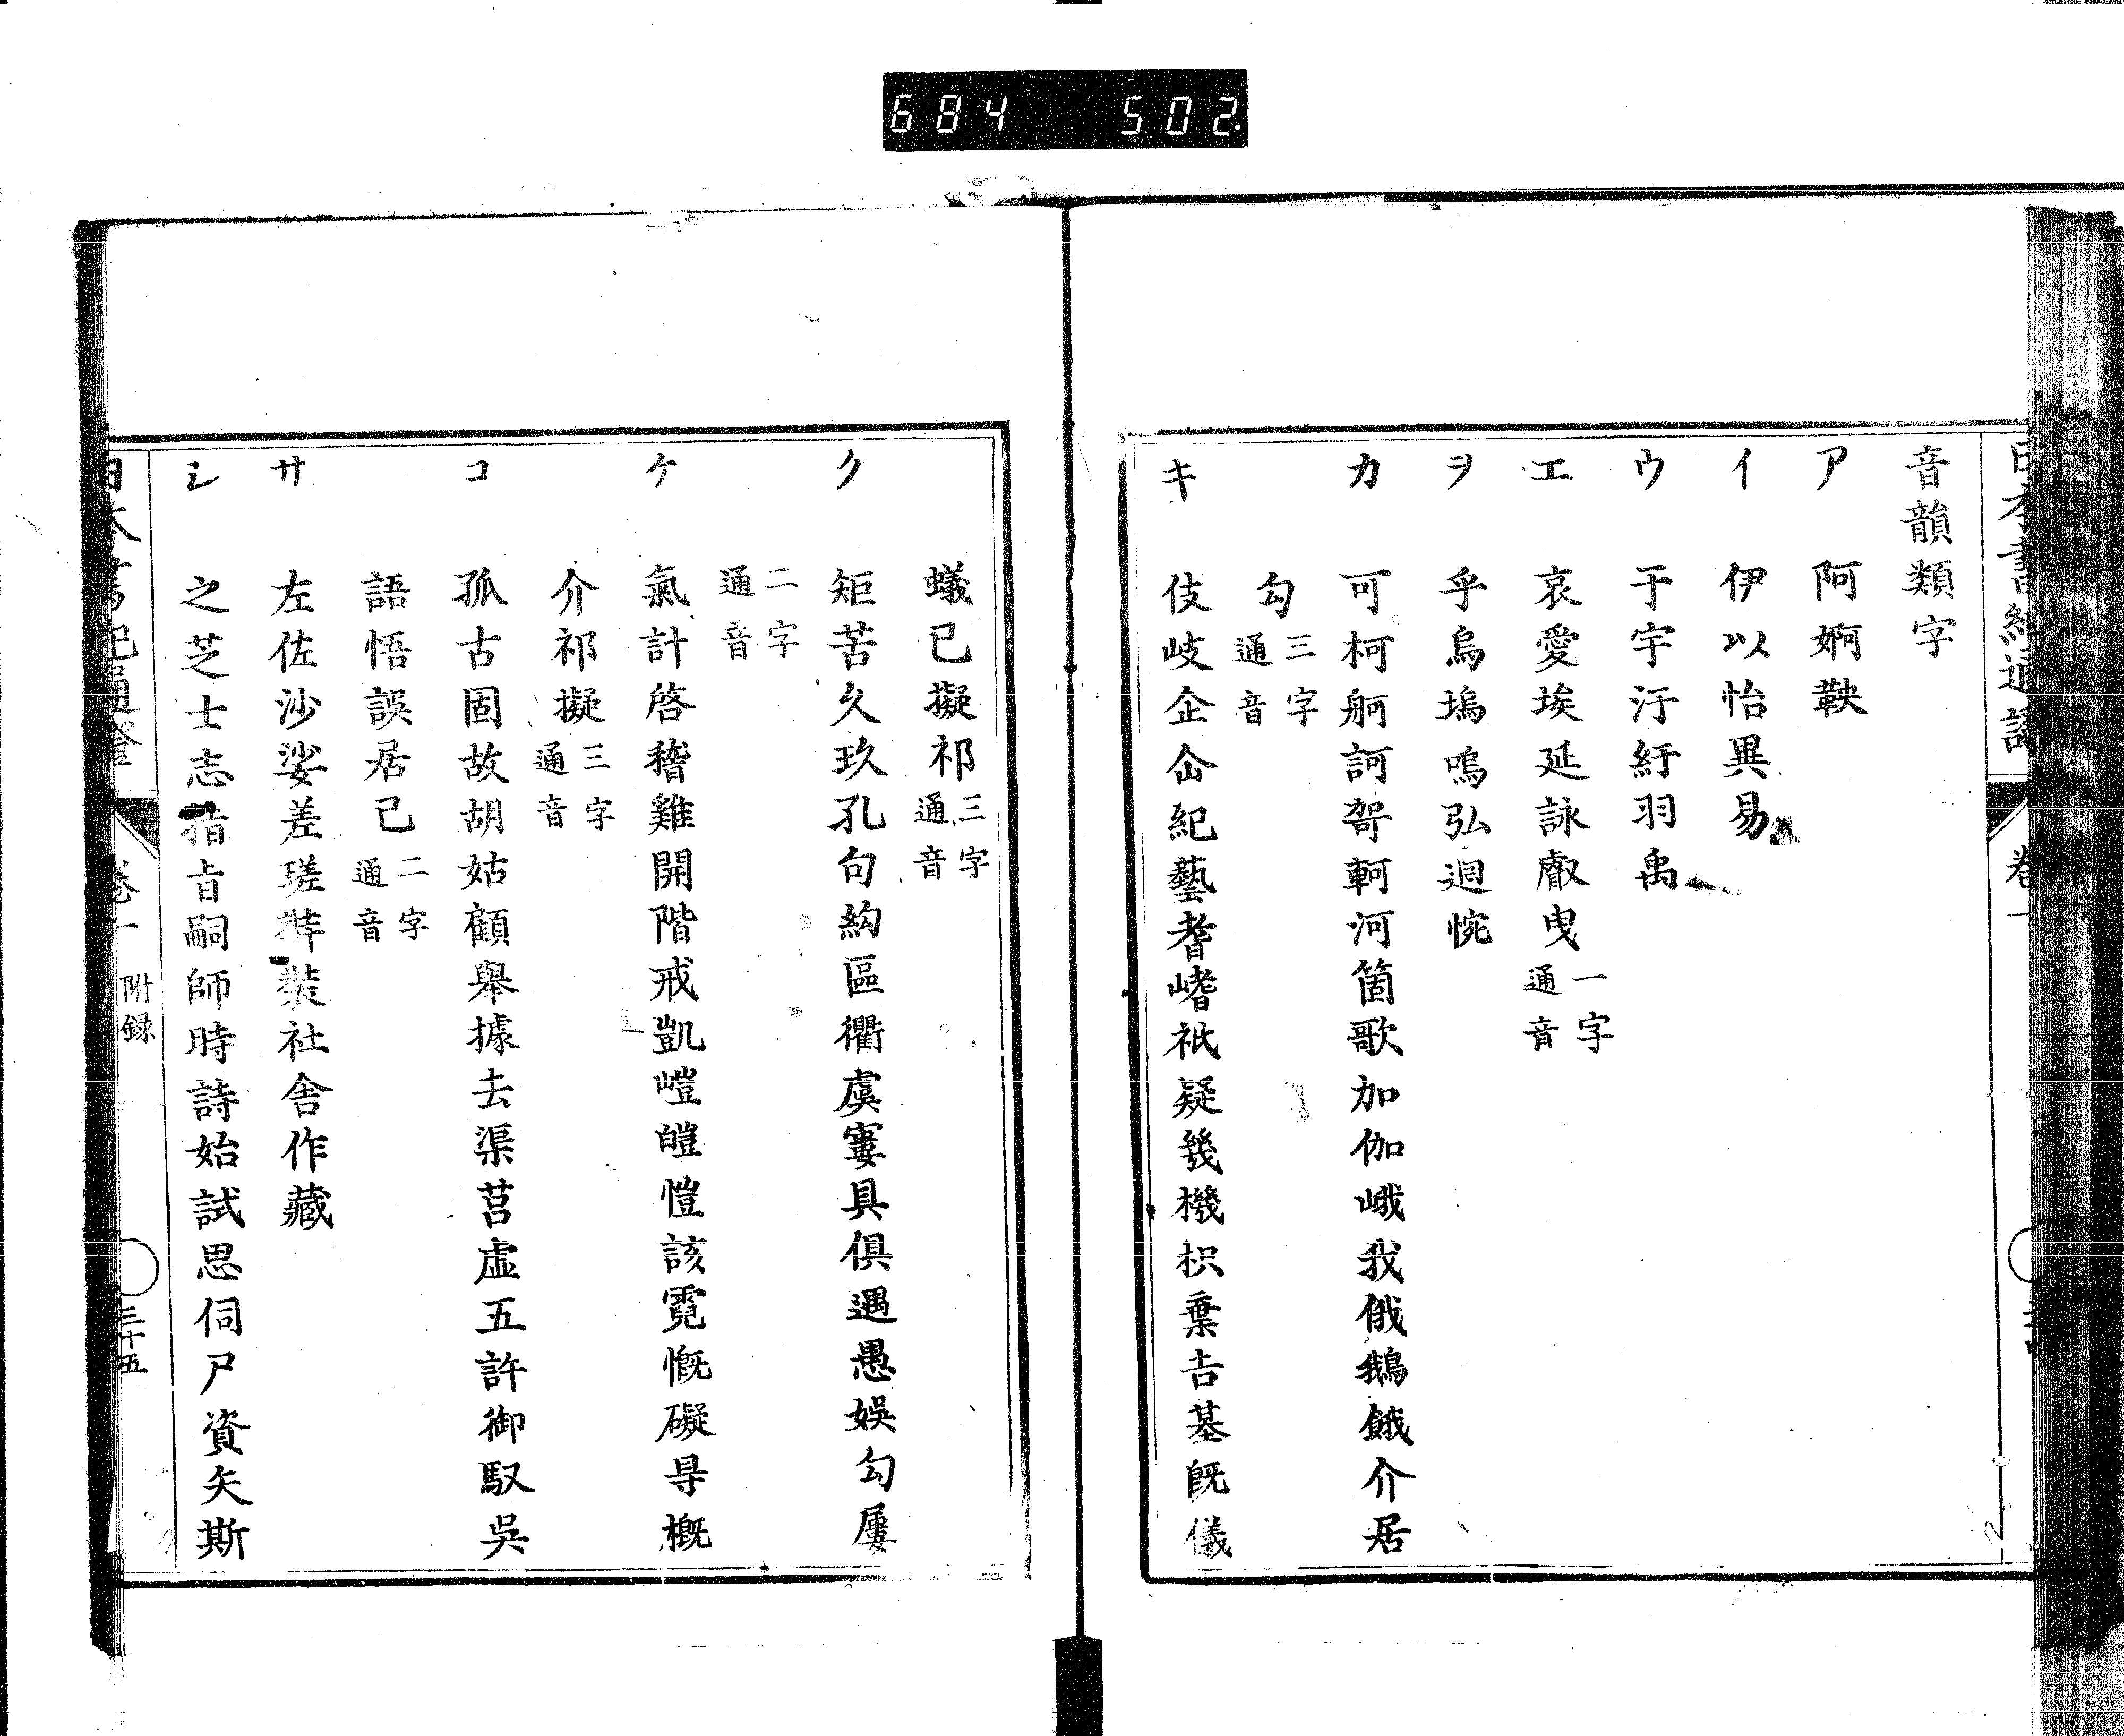 684 502
音韻類字
ア 阿婀鞅
イ 伊以怡異易
ウ 于宇汙紆羽禹
エ 哀愛埃延詠叡曳 一字通音
ヲ 乎烏塢嗚弘迴惋
カ 可柯舸訶哿軻河箇歌加伽峨我俄鵝餓介居
勾 三字通音
キ 伎岐企㐲紀藝耆嗜祇疑幾機枳棄吉基既儀
蟻已擬祁 三字通音
ク 矩苦久玖孔句絇區衢虞寠具倶遇愚娛勾屨
二字通音
ケ 氣計啓稽雞開階戒凱嵦皚愷該霓慨礙㝵概
介祁擬 三字通音
コ 孤古固故胡姑顧舉據去渠莒虛五許御馭吳
語悟誤居己 二字通音
サ 左佐沙娑差瑳裝社舍作藏
シ 之芝士志指旨嗣師時詩始試思伺尸資矢斯
日本書紀通證 卷一 附録 三十五